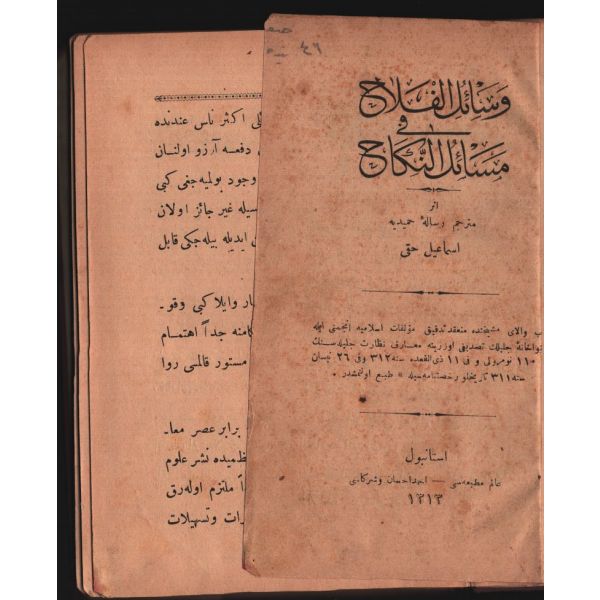 وسائل الفلاح
فى
مسائل النكاح
اثر
مترجم رسالهٔ حميديه
اسماعيل حقى
ب والاى مشيخته منعقد تدقيق مؤلفات اسلاميه انجمنى ايله
جليلهٔ تصديقى اوزرينه معارف نظارت جليله سنك
١١٠ نومرولى و فى ١١ ذى القعده سنه ٣١٢ و فى ٢٦ نيسان
سنه ٣١١ تاريخلو رخصتنامه سيله طبع اولنمشدر .
استانبول
عالم مطبعه سى — احمد احسان و شركاسى
١٣١٣
لى اكثر ناس عندنده
دفعه آرزو اولنان
وجود بولميه جغى كبى
سيله غير جائز اولان
ايديله بيله جكى قابل
ار وايلا كبى وقو-
كامنه جداً اهتمام
مستور قالمسى روا
برابر عصر معا-
ظميده نشر علوم
اً ملتزم اوله رق
رات وتسهيلات